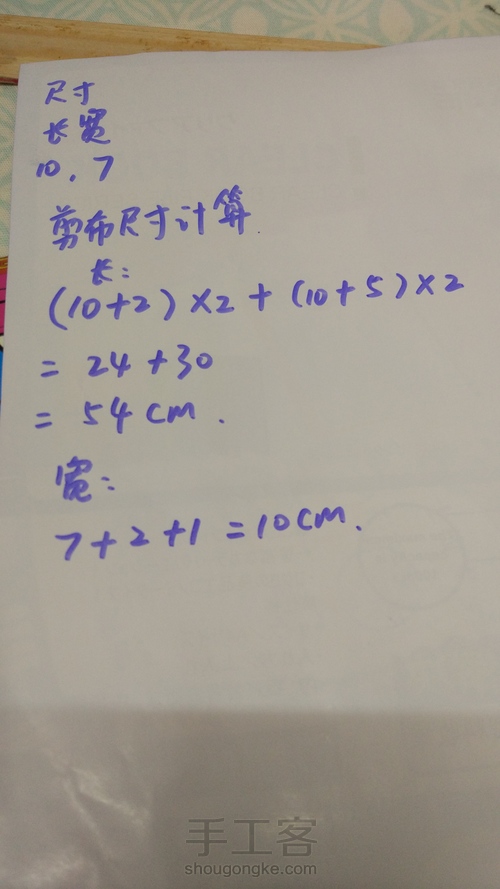 尺寸
长宽
10,7
剪布尺寸计算
长:
(10+2)×2+(10+5)×2
=24+30
=54cm.
宽:
7+2+1=10cm.
手工客
shougongke.com